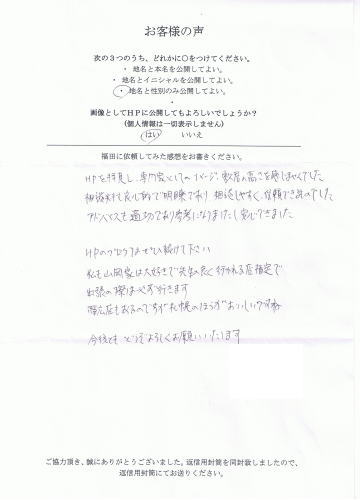 お客様の声
次の３つのうち、どれかに○をつけてください。
・ 地名と本名を公開してよい。
・ 地名とイニシャルを公開してよい。
・ 地名と性別のみ公開してよい。
・
画像としてＨＰに公開してもよろしいでしょうか？
(個人情報は一切表示しません)
はい　いいえ
福田に依頼してみた感想をお書きください。
HPを拝見し、専門家としてのイメージ、敷居の高さを感じませんでした
相談料も良心的で明瞭であり 相談しやすく、信頼できましたのでした
アドバイスも適切であり参考になりましたし安心できました
HPのブログはぜひ続けて下さい
私も山岡家は大好きで
出張の際は必ず行きます
札幌のほうがおいしいですね
今後とも どうぞよろしくお願いいたします
ご協力頂き、誠にありがとうございました。返信用封筒を同封致しましたので、
返信用封筒にてお送りください。